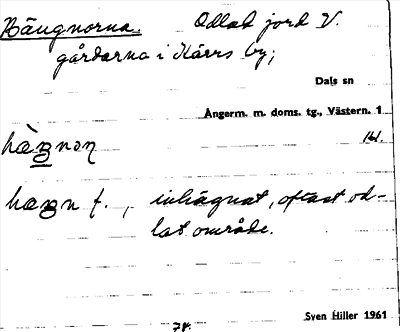 Hängnorna. Odlad jord V.
gårdarna i Kärrs by;
Dals sn
Ångerm. m. doms. tg., Västern. 1
141.
f., inhägnat, oftast od-
lat område.
78.
Sven Hiller 1961